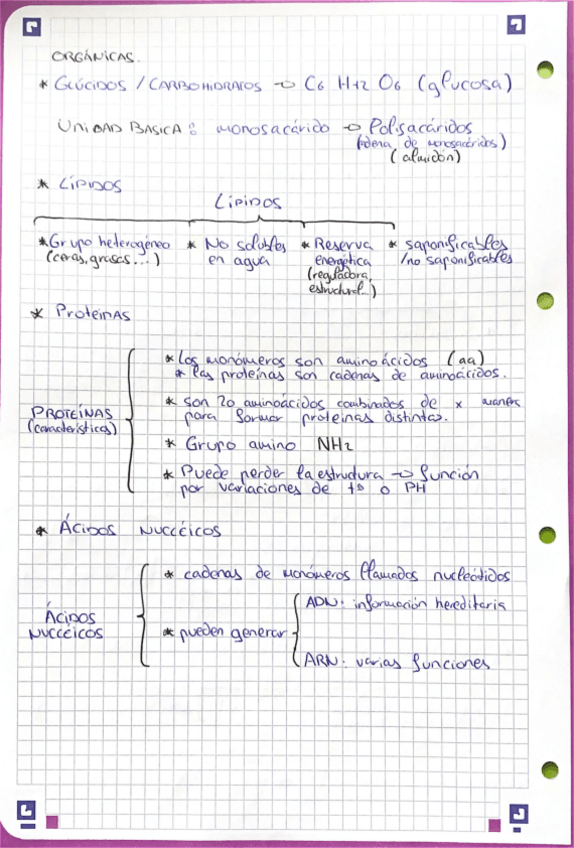 ORGÁNICAS.
* GLÚCIDOS / CARBOHIDRATOS → C6 H12 O6 (glucosa)
UNIDAD BASICA: monosacárido → Polisacáridos
(cadena de monosacáridos)
(almidón)
* LÍPIDOS
LÍPIDOS
* Grupo heterogéneo * No solubles * Reserva * saponificables
(ceras, grasas...) en agua energética /no saponificables
(reguladora,
estructural...)
* Proteínas
* Los monómeros son aminoácidos (aa)
* las proteínas son cadenas de aminoácidos.
* son 20 aminoácidos combinados de x manera
PROTEÍNAS para formar proteínas distintas.
(características)
* Grupo amino NH2
* Puede perder la estructura → función
por variaciones de tª o PH
* ÁCIDOS NUCLÉICOS
* cadenas de monómeros llamados nucleótidos
ADN: información hereditaria
ÁCIDOS
NUCLÉICOS * pueden generar
ARN: varias funciones